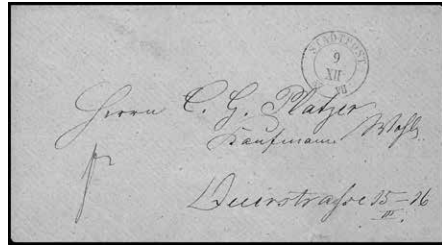 STADTPOST
9
XII
Herrn C. G. Platzer
Kaufmann Wohlg.
Querstraße 15-16
III.